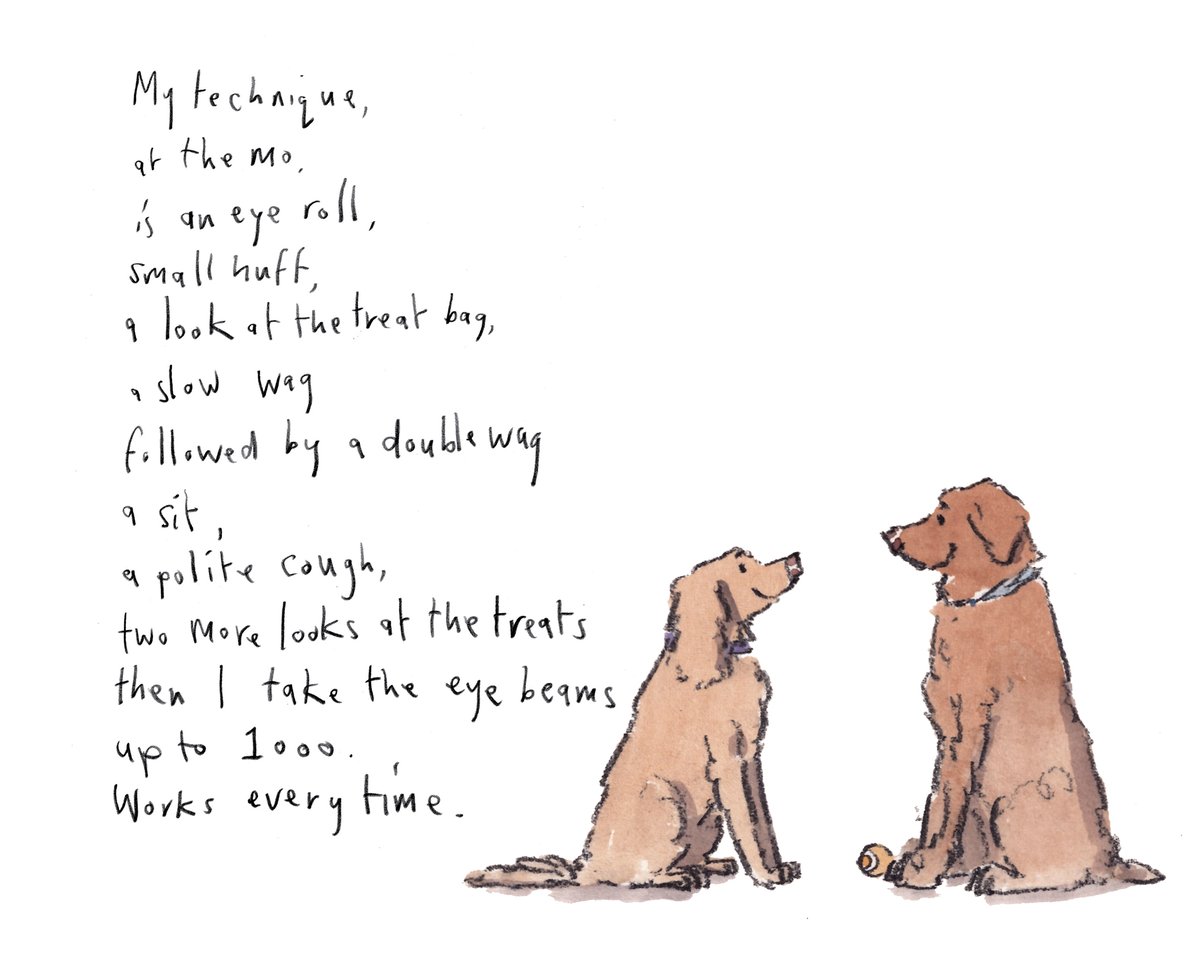 My technique,
at the mo,
is an eye roll,
small huff,
a look at the treat bag,
a slow wag
followed by a double wag
a sit,
a polite cough,
two more looks at the treats
then I take the eye beams
up to 1000.
Works every time.